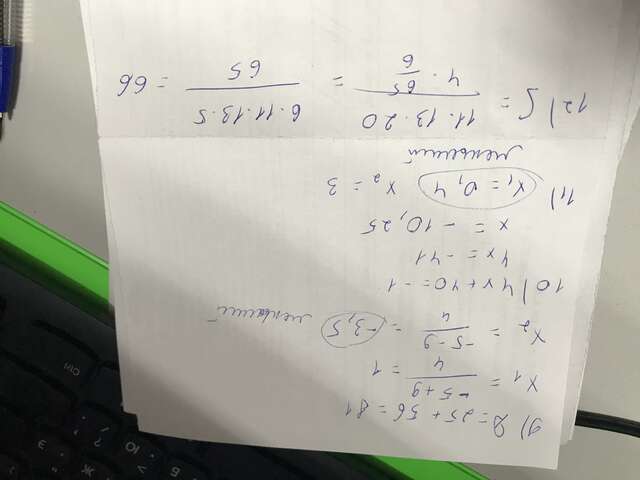 9) D = 25 + 56 = 81
x₁ = (-5+9)/4 = 1
x₂ = (-5-9)/4 = -3,5 меньший
10) 4x + 40 = -1
4x = -41
x = -10,25
11) x₁ = 0,4 x₂ = 3
меньший
12) S = (11·13·20)/(4·65/6) = (6·11·13·5)/65 = 66
Ctrl